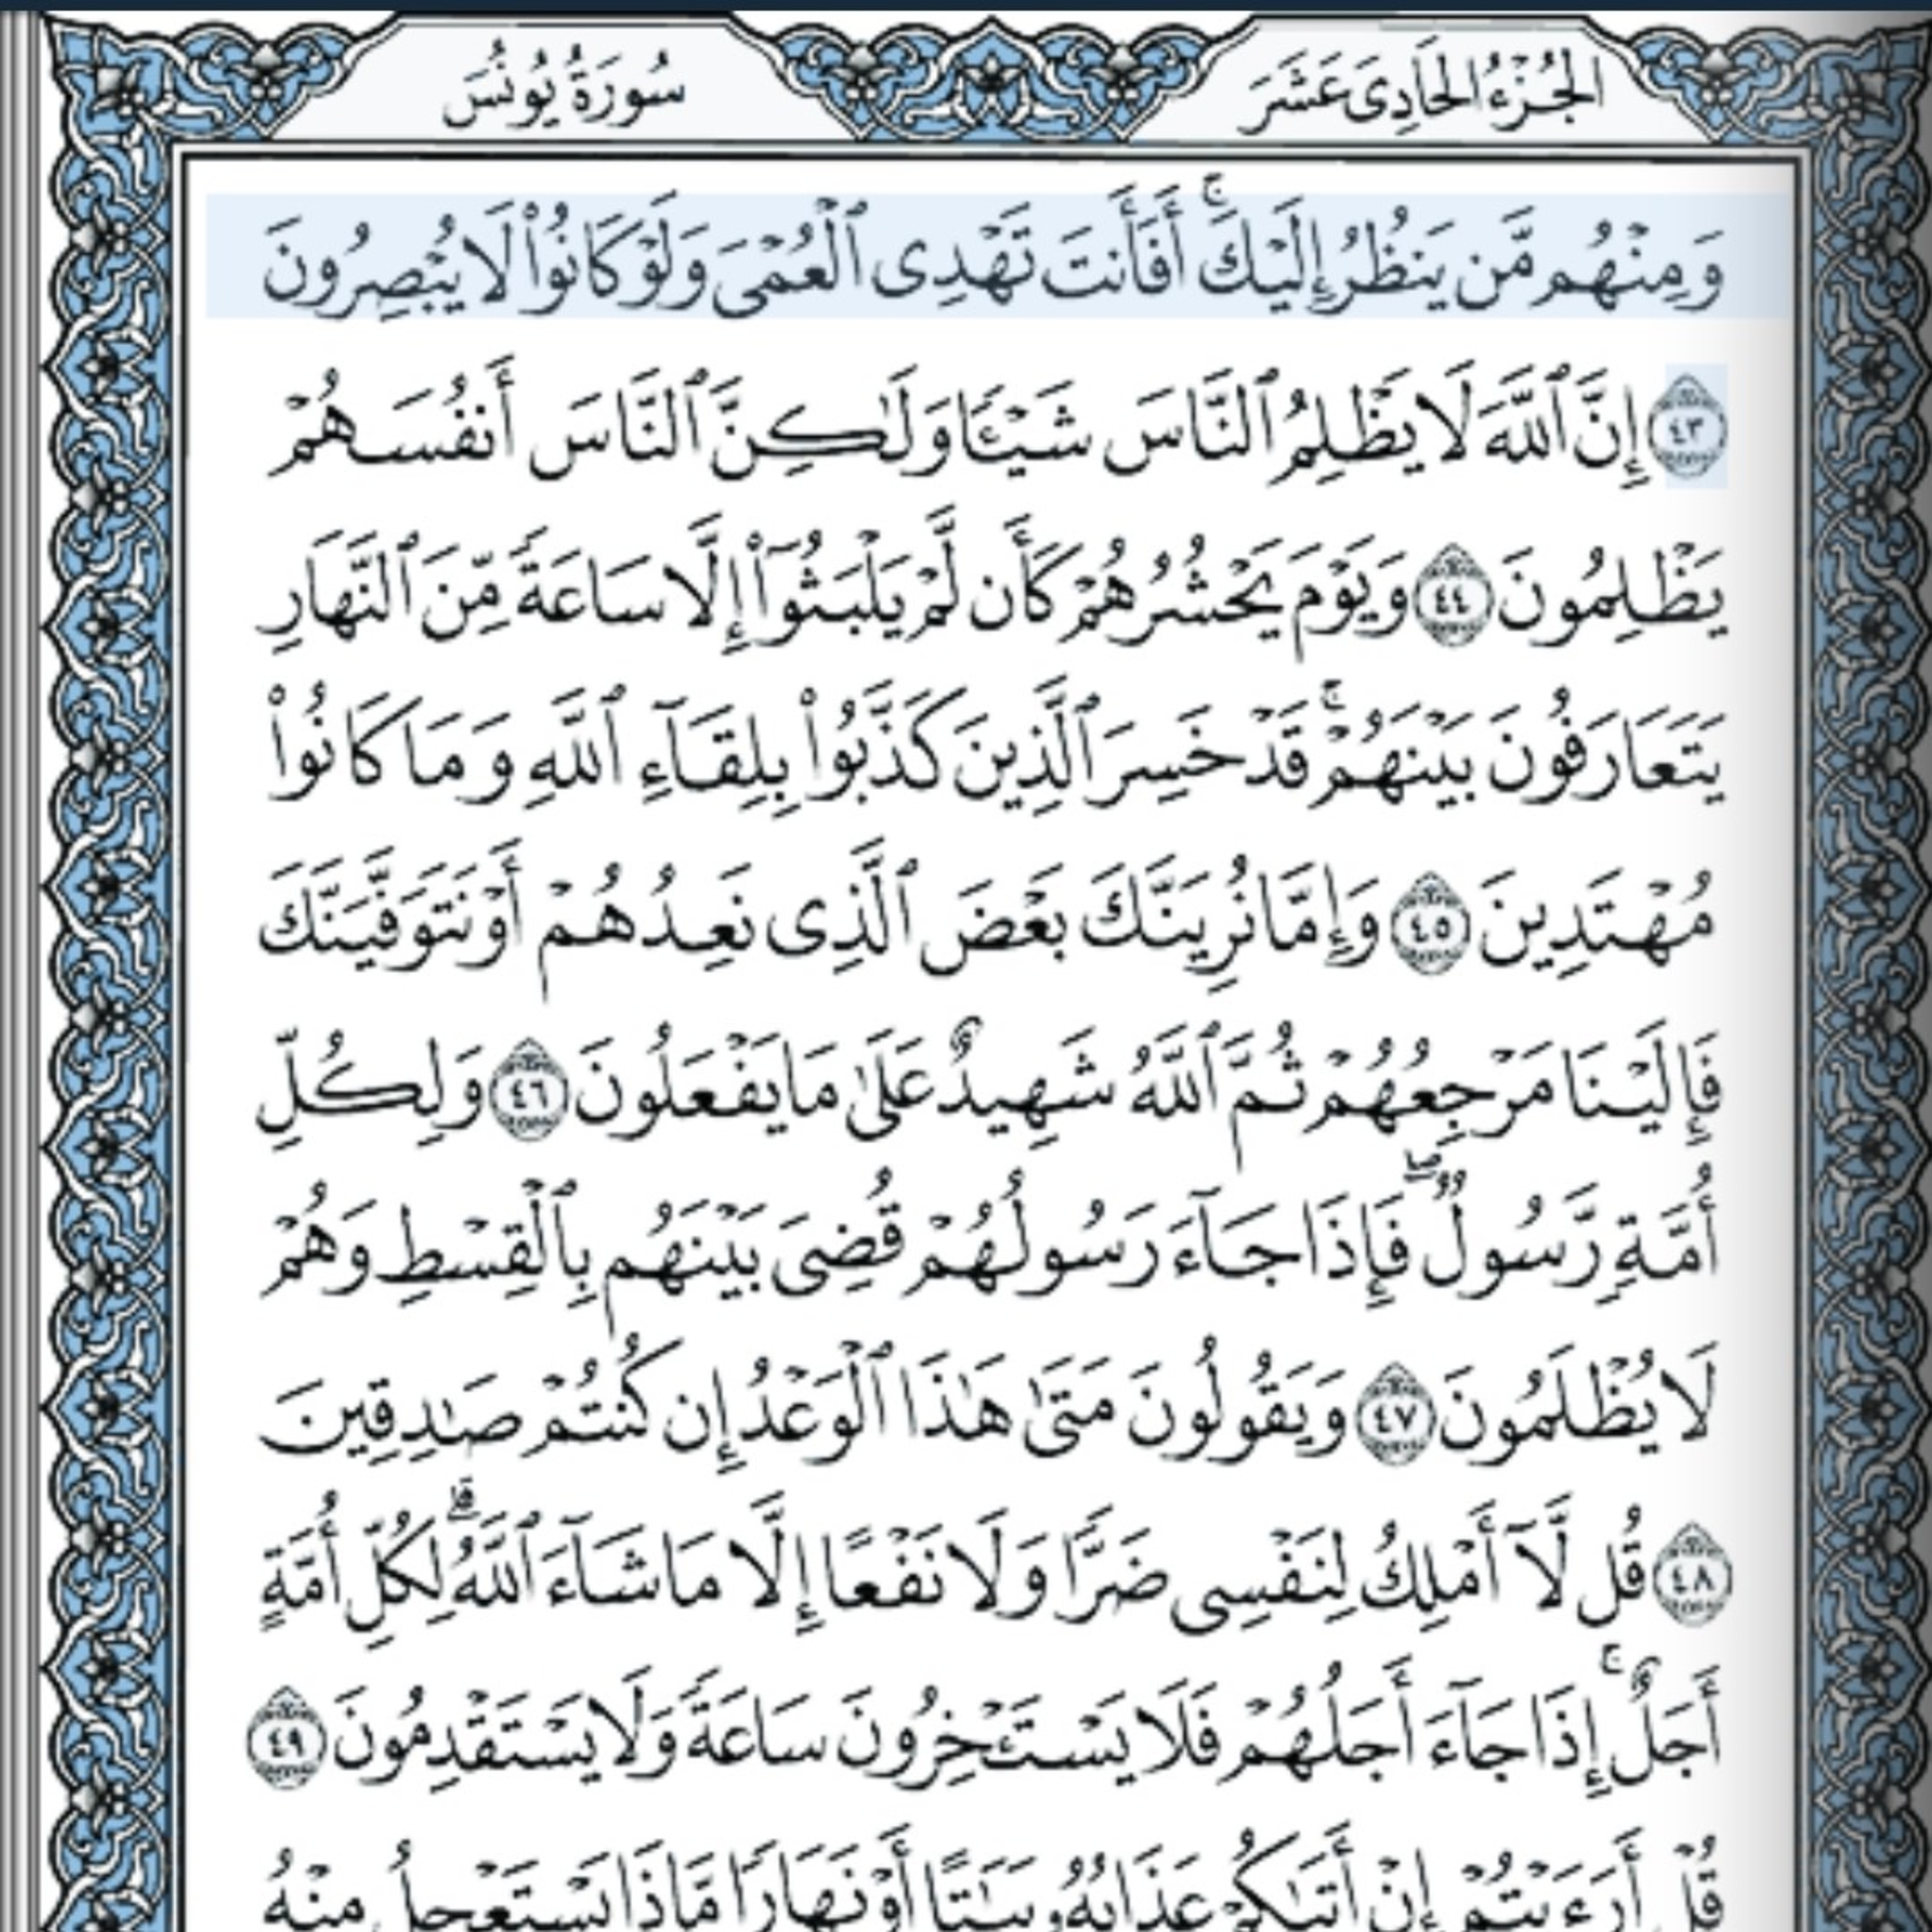 الجُزْءُ الحَادِىَ عَشَرَ
سُورَةُ يُونُسَ
وَمِنْهُم مَّن يَنظُرُ إِلَيْكَۚ أَفَأَنتَ تَهْدِى ٱلْعُمْىَ وَلَوْ كَانُوا۟ لَا يُبْصِرُونَ
٤٣ إِنَّ ٱللَّهَ لَا يَظْلِمُ ٱلنَّاسَ شَيْـًٔا وَلَٰكِنَّ ٱلنَّاسَ أَنفُسَهُمْ
يَظْلِمُونَ ٤٤ وَيَوْمَ يَحْشُرُهُمْ كَأَن لَّمْ يَلْبَثُوٓا۟ إِلَّا سَاعَةً مِّنَ ٱلنَّهَارِ
يَتَعَارَفُونَ بَيْنَهُمْۚ قَدْ خَسِرَ ٱلَّذِينَ كَذَّبُوا۟ بِلِقَآءِ ٱللَّهِ وَمَا كَانُوا۟
مُهْتَدِينَ ٤٥ وَإِمَّا نُرِيَنَّكَ بَعْضَ ٱلَّذِى نَعِدُهُمْ أَوْ نَتَوَفَّيَنَّكَ
فَإِلَيْنَا مَرْجِعُهُمْ ثُمَّ ٱللَّهُ شَهِيدٌ عَلَىٰ مَا يَفْعَلُونَ ٤٦ وَلِكُلِّ
أُمَّةٍ رَّسُولٌۖ فَإِذَا جَآءَ رَسُولُهُمْ قُضِىَ بَيْنَهُم بِٱلْقِسْطِ وَهُمْ
لَا يُظْلَمُونَ ٤٧ وَيَقُولُونَ مَتَىٰ هَٰذَا ٱلْوَعْدُ إِن كُنتُمْ صَٰدِقِينَ
٤٨ قُل لَّآ أَمْلِكُ لِنَفْسِى ضَرًّا وَلَا نَفْعًا إِلَّا مَا شَآءَ ٱللَّهُۗ لِكُلِّ أُمَّةٍ
أَجَلٌۚ إِذَا جَآءَ أَجَلُهُمْ فَلَا يَسْتَـْٔخِرُونَ سَاعَةً وَلَا يَسْتَقْدِمُونَ ٤٩
قُلْ أَرَءَيْتُمْ إِنْ أَتَىٰكُمْ عَذَابُهُۥ بَيَٰتًا أَوْ نَهَارًا مَّاذَا يَسْتَعْجِلُ مِنْهُ